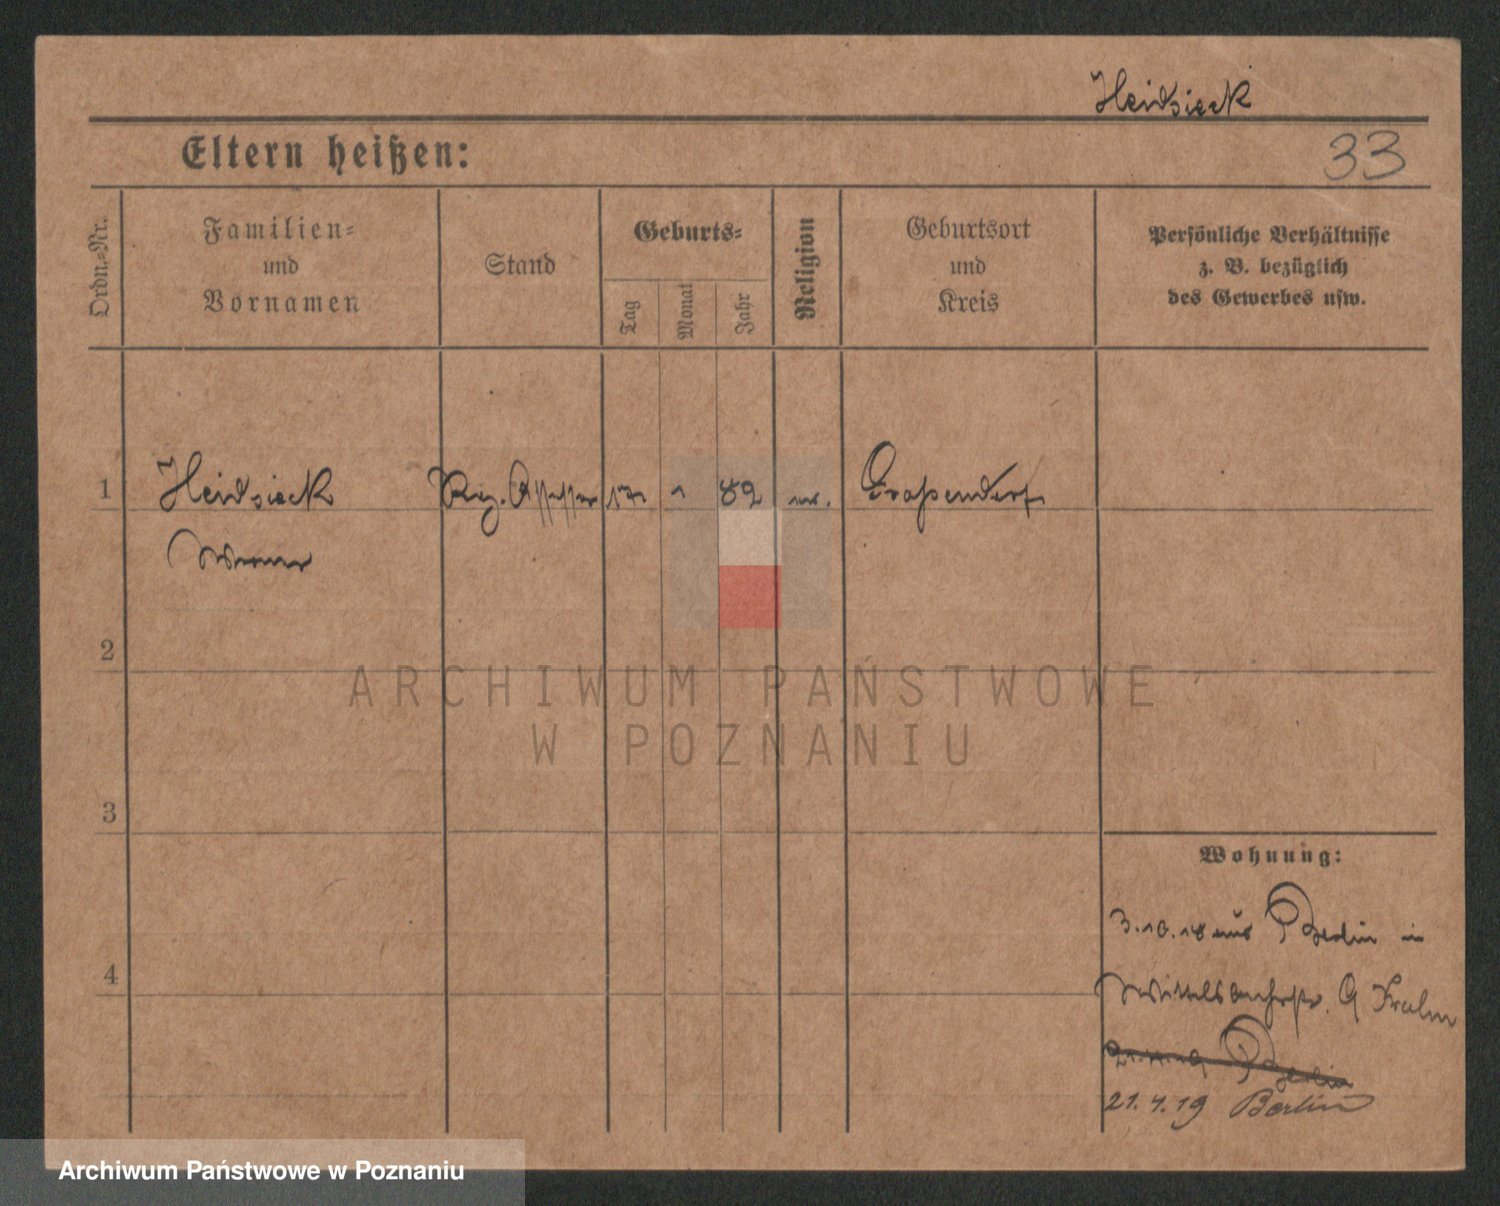 Heidsieck
Eltern heißen:
33
Ordn.-Nr.
Familien-
und
Vornamen
Stand
Geburts-
Tag
Monat
Jahr
Religion
Geburtsort
und
Kreis
Persönliche Verhältnisse
z. B. bezüglich
des Gewerbes usw.
1 Heidsieck Reg. Assessor 17 1 82 Großendorf
Werner
2
ARCHIWUM PAŃSTWOWE
W POZNANIU
3
Wohnung:
3.10.18 aus Berlin in
4
Berlin
21.4.19 Berlin
Archiwum Państwowe w Poznaniu